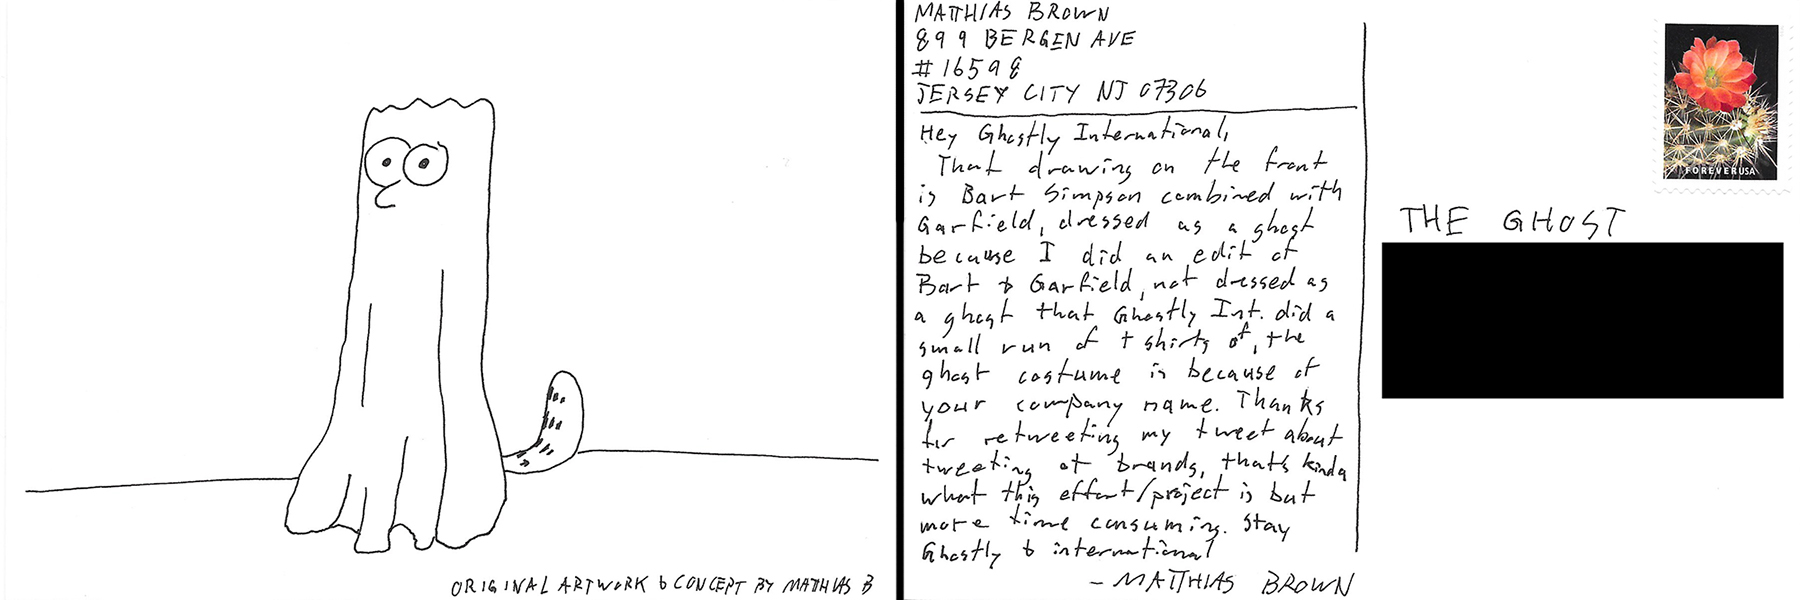 ORIGINAL ARTWORK & CONCEPT BY MATTHIAS B
MATTHIAS BROWN
899 BERGEN AVE
#16598
JERSEY CITY NJ 07306
Hey Ghostly International,
That drawing on the front
is Bart Simpson combined with
Garfield, dressed as a ghost
because I did an edit of
Bart & Garfield, not dressed as
a ghost that Ghostly Int. did a
small run of t shirts of, the
ghost costume is because of
your company name. Thanks
for retweeting my tweet about
tweeting at brands, that's kinda
what this effort/project is but
more time consuming. Stay
Ghostly & international
- MATTHIAS BROWN
FOREVER USA
THE GHOST